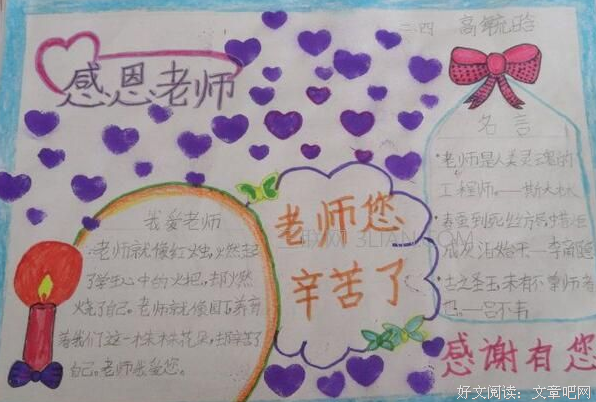 感恩老师
二四
名言
·老师是人类灵魂的
工程师。——斯大林
·春蚕到死丝方尽,蜡炬
成灰泪始干——李商隐
·古之圣王,未有不尊师者
也。——吕不韦
我爱老师
老师就像红烛,燃起
了学生心中的火把,却燃
烧了自己。老师就像园丁,养育
着我们这一株株花朵,却辛苦了
自己。老师我爱您。
老师您
辛苦了
3LIAN.COM
感谢有您
好文阅读:文章吧网